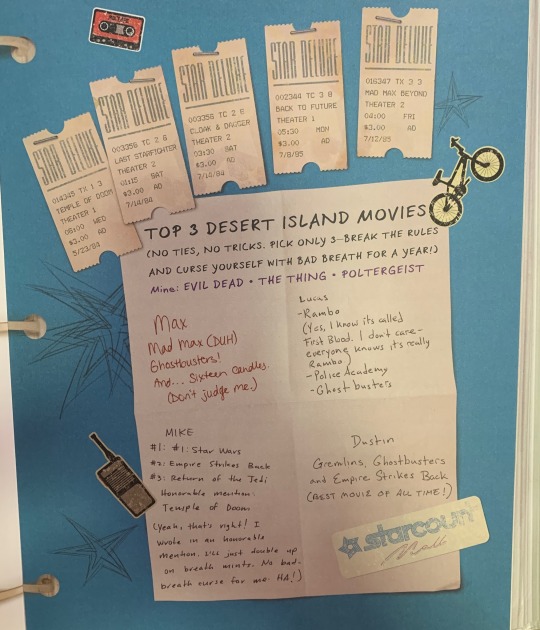 STAR DELUXE
014345 TX 1 3
TEMPLE OF DOOM
THEATER 1
06:00 WED
$3.00 AD
5/23/84
STAR DELUXE
003356 TC 2 8
LAST STARFIGHTER
THEATER 2
01:15 SAT
$3.00 AD
7/14/84
STAR DELUXE
003358 TC 2 8
CLOAK & DAGGER
THEATER 2
03:30 SAT
$3.00 AD
7/14/84
STAR DELUXE
002344 TC 3 8
BACK TO FUTURE
THEATER 1
05:30 MON
$3.00 AD
7/8/85
STAR DELUXE
016347 TX 3 3
MAD MAX BEYOND
THEATER 2
04:00 FRI
$3.00 AD
7/12/85
TOP 3 DESERT ISLAND MOVIES
(NO TIES, NO TRICKS. PICK ONLY 3–BREAK THE RULES
AND CURSE YOURSELF WITH BAD BREATH FOR A YEAR!)
Mine: EVIL DEAD • THE THING • POLTERGEIST
Max
Mad Max (DUH)
Ghostbusters!
And... Sixteen Candles.
(Don't judge me.)
Lucas
-Rambo
(Yes, I know its called
First Blood. I don't care-
everyone knows it's really
Rambo)
-Police Academy
-Ghostbusters
MIKE
#1: #1: Star Wars
#2: Empire Strikes Back
#3: Return of the Jedi
Honorable mention:
Temple of Doom
(Yeah, that's right! I
wrote in an honorable
mention. I'll just double up
on breath mints. No bad-
breath curse for me. HA!)
Dustin
Gremlins, Ghostbusters
and Empire Strikes Back
(BEST MOVIE OF ALL TIME!)
starcourt
Mall